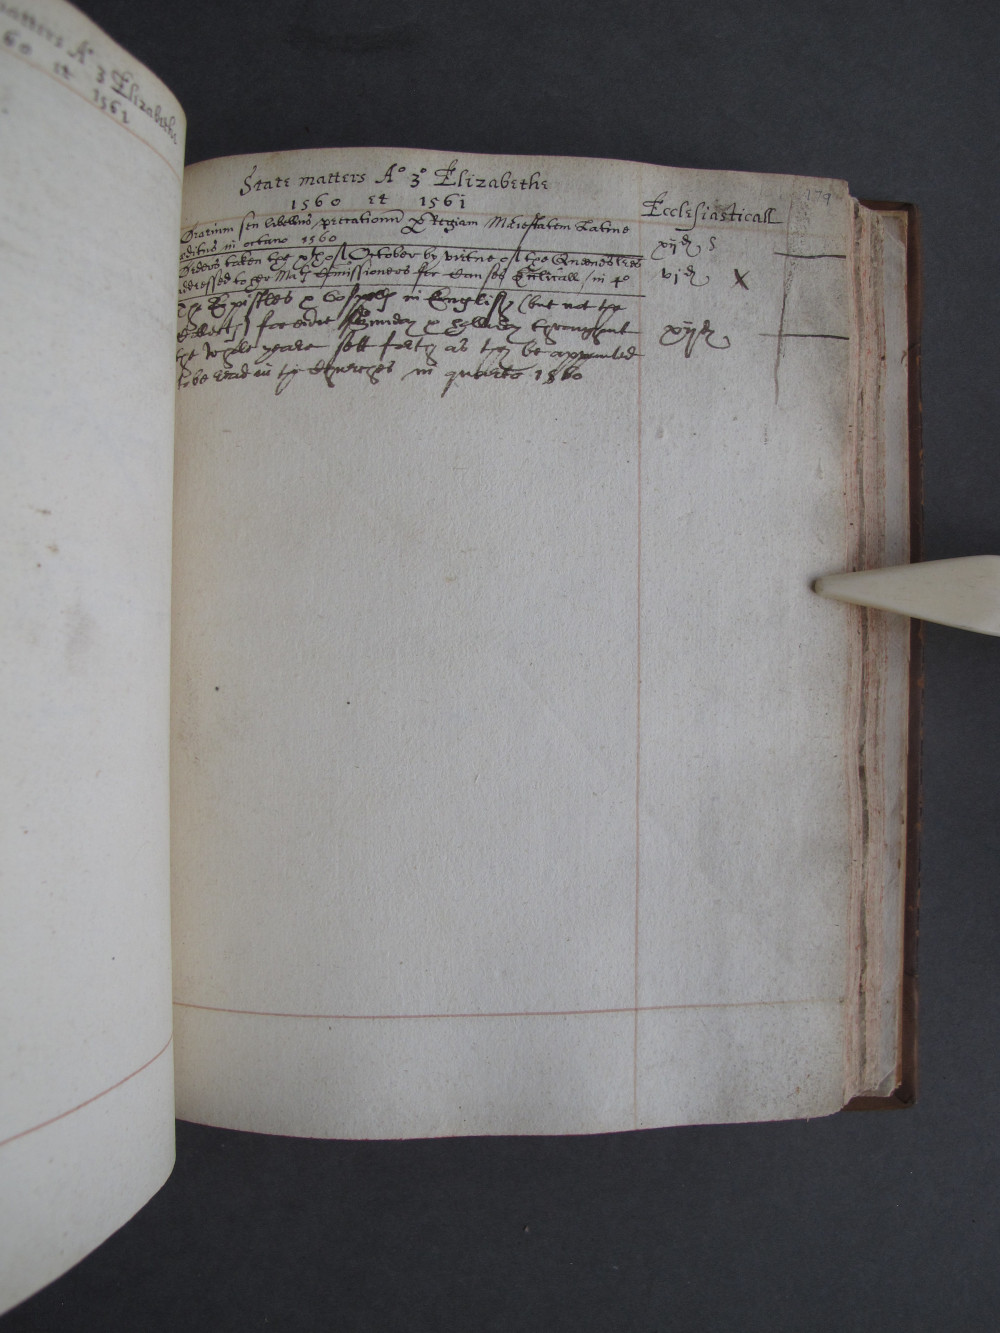 matters A° 3 Elizabethe
60 et 1561
State matters A° 3° Elizabethe
1560 et 1561
Ecclesiasticall
179
Orarium seu libellus precationū p Regiam Maiestatem Latine
æditus in octavo 1560
xijd
Orders taken the xth of October by virtue of the Queenes lres
addressed to her Ma: Comissioners for in 4°
vjd X
The Epistles & Gospells in English (but not the
Collects) for everie Sunday & holliday throughout
the whole yeare sett forth as they be appointed
to be read in the Churches in quarto 1560
xijd